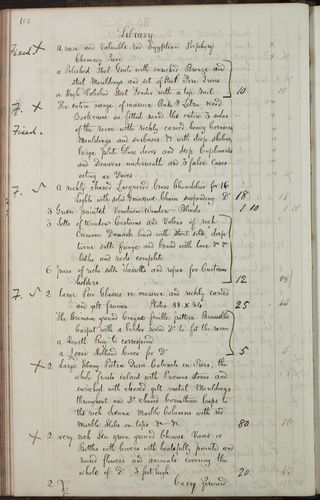 100
Library
Fixed X a rare and valuable red Egyptian Porphyry
Chimney Piece
a Polished Steel Grate with enriched Bronze and
Steel Mouldings and set of Steel Fire Irons
a High Polished Steel Fender with a top rail 10 10
F. X The entire range of massive Oak &
Fixed. Bookcases as fitted round the entire 3 sides
of the Room with richly carved heavy Cornices
Mouldings and &c with deep shelves
large Plate Glass doors and deep Cupboards
and Drawers underneath and 3 false Cases
acting as Doors
F. a richly chased Lacquered Brass Chandelier for 16
Lights with solid Brass Chain suspending Do 18 18
3 Green painted Venetian Window Blinds 1 10 1 10
3 Setts of Window Curtains and Valens of rich
Crimson Damask lined with stout silk deep
twine silk fringe and bound with lace &c &c
laths and rods complete
6 pairs of rich silk Tassells and ropes for Curtain
holders 12
F. 2 large Pier Glasses in massive and richly carved
and gilt frames Plates 88 x 54 25
The Crimson ground Cinque feuille pattern Brussells
Carpet with a border round Do to fit the room
a Hearth Rug to correspond
a Loose Holland Cover for Do 5
X 2 Large Ebony Pietra Dura Cabinets or Piers, the
whole fronts inlaid with Precious Stones and
enriched with chased gilt metal Mouldings
throughout and Do chased Corinthian Caps to
the rich Sienna Marble Columns with red
Marble Slabs on tops &c &c 80 80
X 2 very rich Sea green ground Chinese Vases or
Bottles with Covers with beautifully painted and
raised flowers and animals covering the
whole of Do 3 feet high 20
Carry Forward